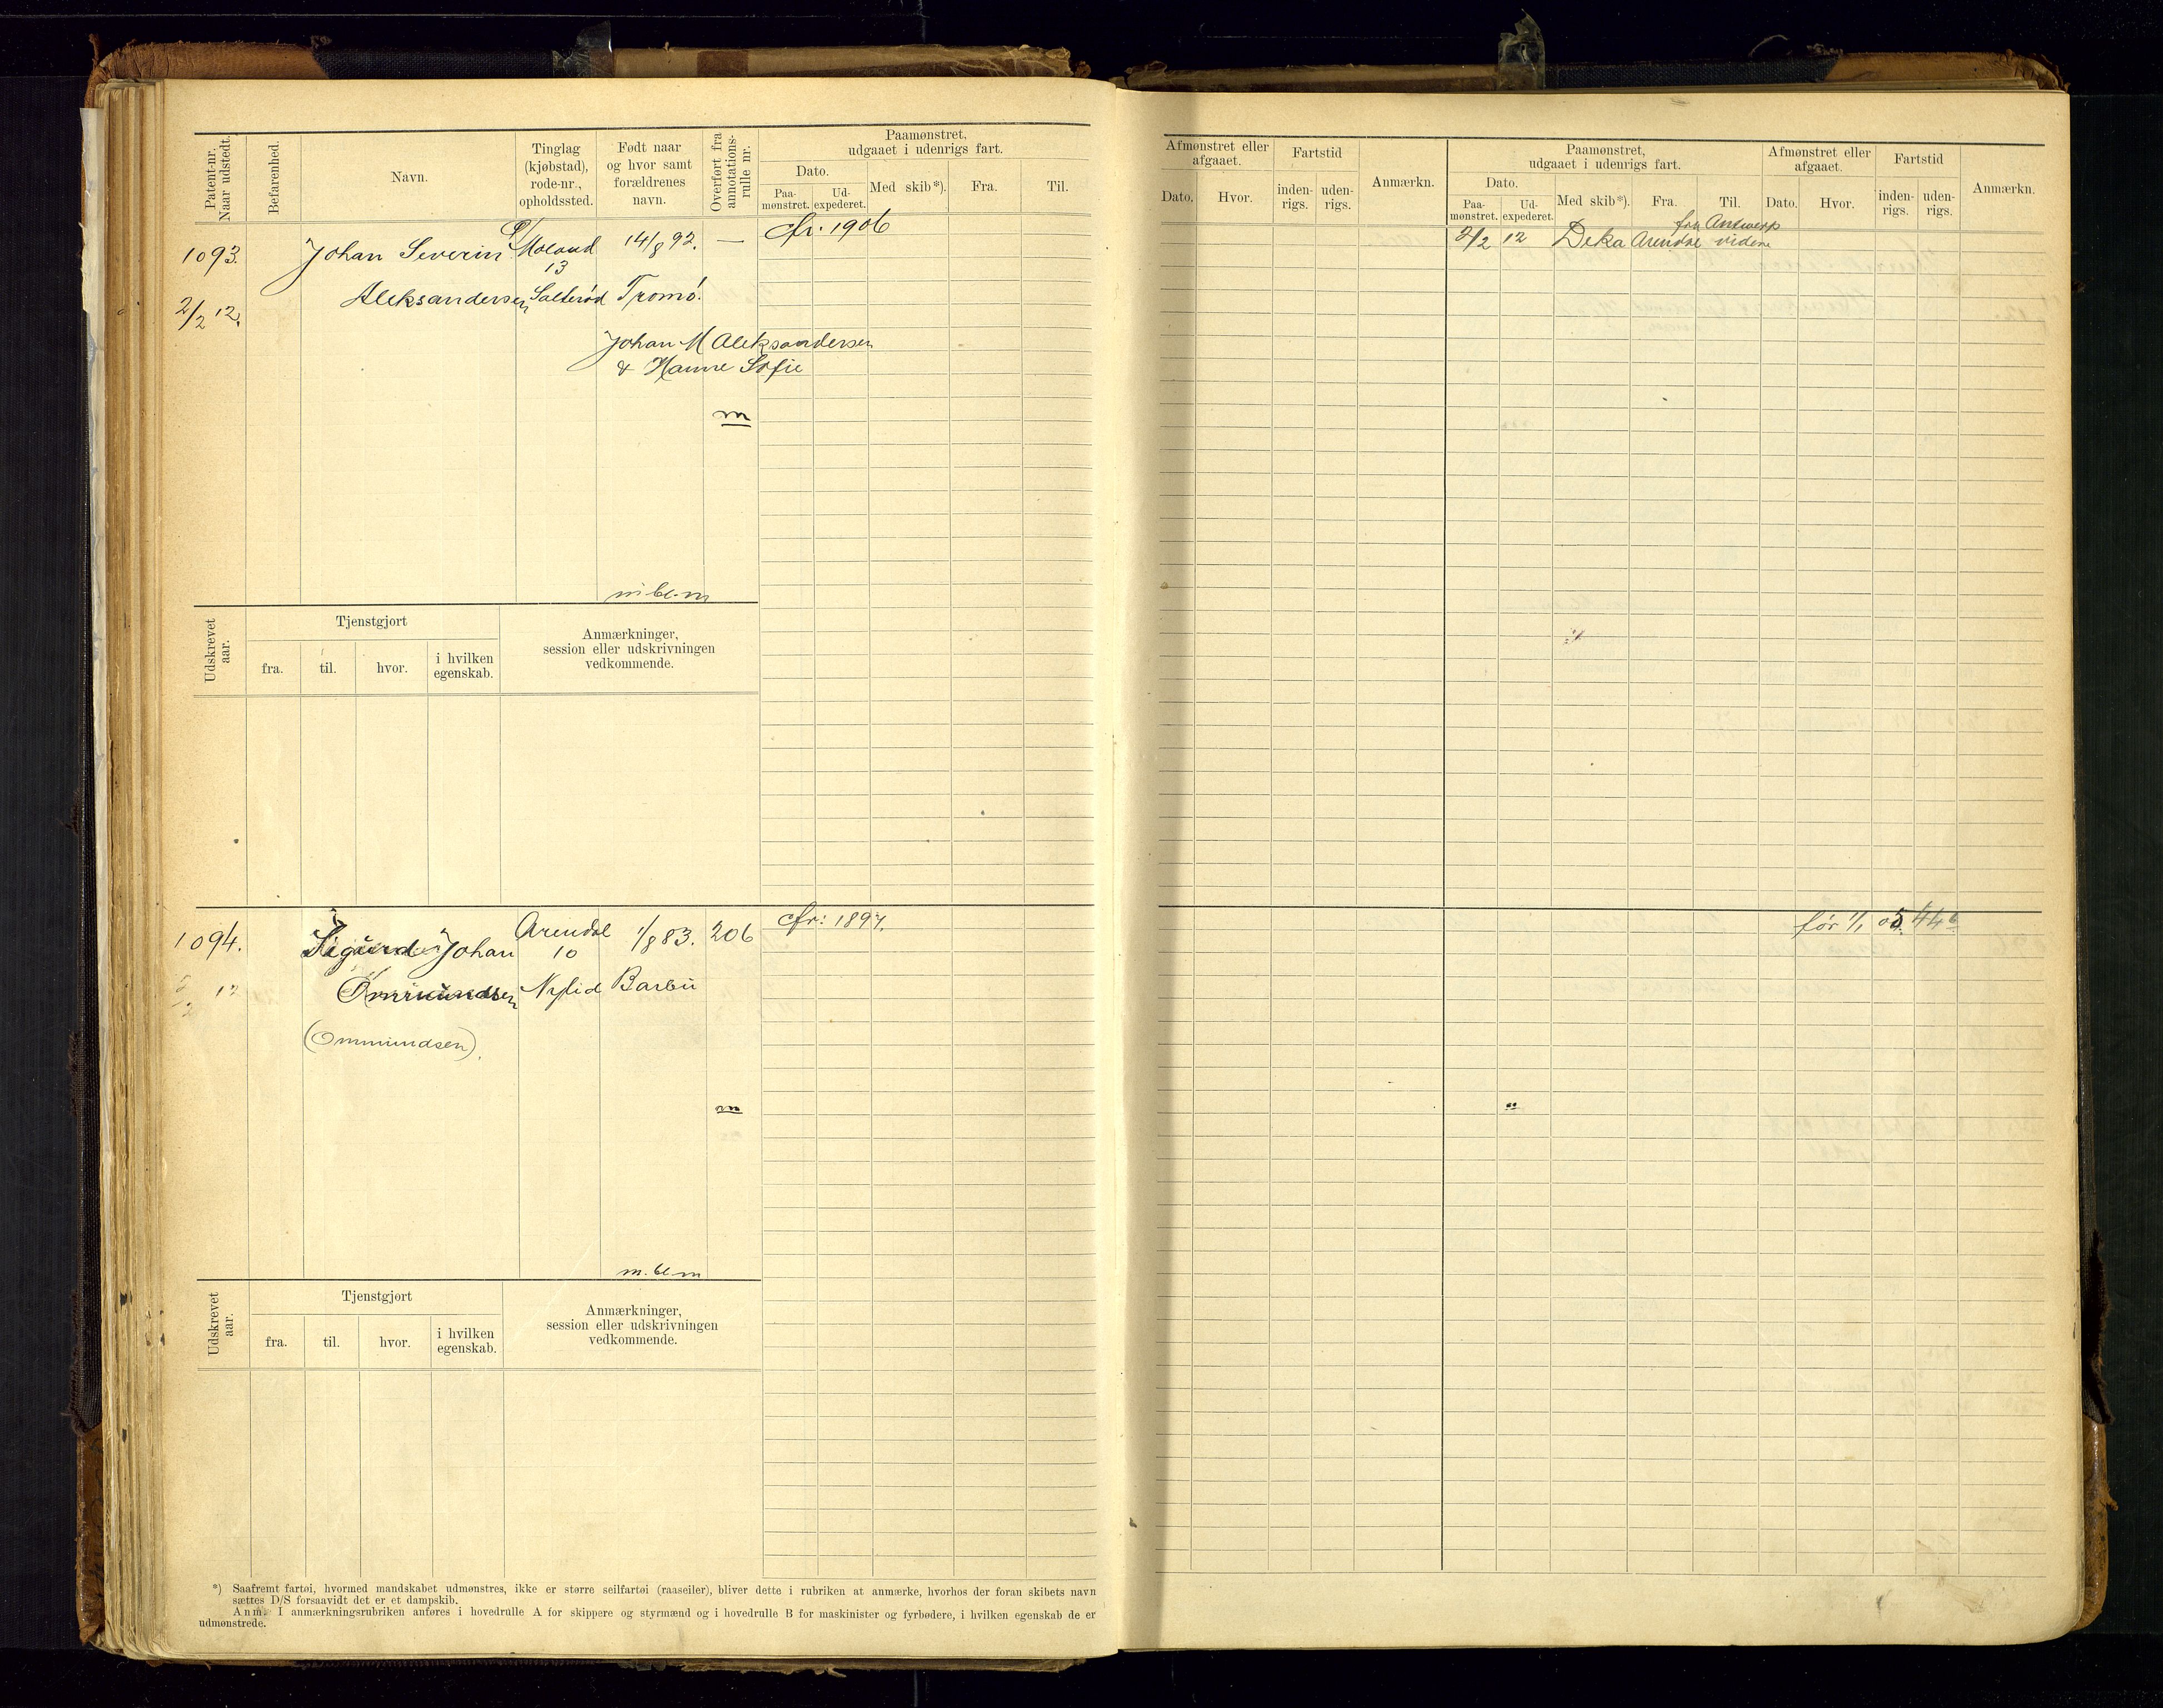 Patent-nr.
Naar udstedt.
Befarenhed.
Navn.
Tinglag
(kjøbstad),
rode-nr.,
opholdssted.
Født naar
og hvor samt
forældrenes
navn.
Overført fra
annotations-
rulle nr.
Paamønstret,
udgaaet i udenrigs fart.
Dato.
Paa-
mønstret.
Ud-
expederet.
Med skib*).
Fra.
Til.
1093.
2/2 12.
Johan Severin
Aleksandersen
Ø/
Moland
13
Salterød
14/8 92.
Tromø.
Johan M Aleksandersen
& Hanne Sofie
—
cfr: 1906
m
m. bl. m
Udskrevet
aar.
Tjenstgjort
fra.
til.
hvor.
i hvilken
egenskab.
Anmærkninger,
session eller udskrivningen
vedkommende.
1094.
12
Sigurd Johan
Ommundsen
(Ommundsen).
Arendal
10
Nylid
1/8 83.
Barbu
206
cfr: 1897.
m
m. bl. m
Udskrevet
aar.
Tjenstgjort
fra.
til.
hvor.
i hvilken
egenskab.
Anmærkninger,
session eller udskrivningen
vedkommende.
*) Saafremt fartøi, hvormed mandskabet udmønstres, ikke er større seilfartøi (raaseiler), bliver dette i rubriken at anmærke, hvorhos der foran skibets navn
sættes D/S forsaavidt det er et dampskib.
Anm. I anmærkningsrubriken anføres i hovedrulle A for skippere og styrmænd og i hovedrulle B for maskinister og fyrbødere, i hvilken egenskab de er
udmønstrede.
Afmønstret eller
afgaaet.
Dato.
Hvor.
Fartstid
inden-
rigs.
uden-
rigs.
Anmærkn.
Paamønstret,
udgaaet i udenrigs fart.
Dato.
Paa-
mønstret.
Ud-
expederet.
Med skib*).
Fra.
Til.
Afmønstret eller
afgaaet.
Dato.
Hvor.
Fartstid
inden-
rigs.
uden-
rigs.
Anmærkn.
fra Antwerp
2/2 12 Deka Arendal videre
før 1/1 05. 44